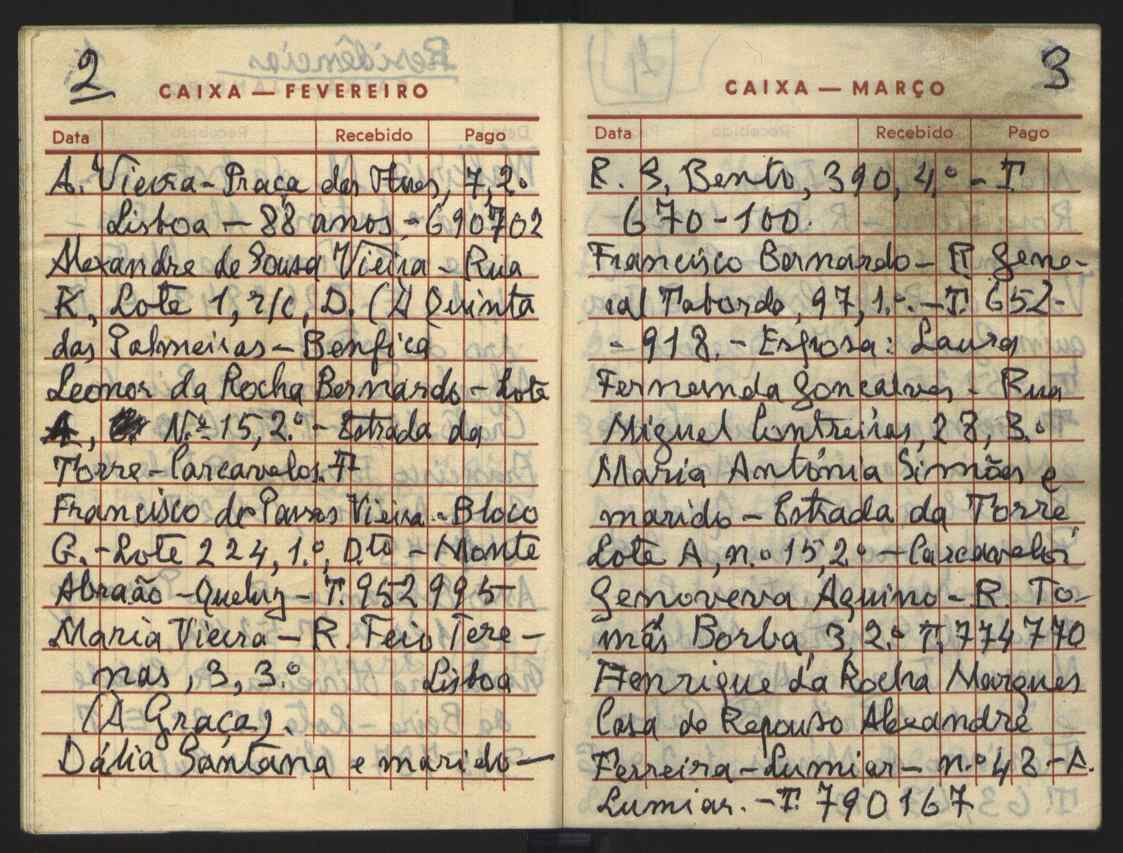 2
CAIXA — FEVEREIRO
Data Recebido Pago
A. Vieira - Praça das Flores, 7, 2.º
Lisboa - 88 anos - 690702
Alexandre de Sousa Vieira - Rua
K, Lote 1, r/c, D. (À Quinta
das Palmeiras - Benfica
Leonor da Rocha Bernardo - Lote
A, N.º 15, 2.º - Estrada da
Torre - Carcavelos.
Francisco de Passos Vieira - Bloco
G. - Lote 224, 1.º, D.to - Monte
Abraão - Queluz - T. 952995
Maria Vieira - R. Feio Tere-
nas, 3, 3.º Lisboa
(À Graça).
Dália Santana e marido -
3
CAIXA — MARÇO
Data Recebido Pago
R. S. Bento, 390, 4.º - T
670-100.
Francisco Bernardo - R. Gene-
ral Taborda, 97, 1.º. - T. 652-
- 918. - Esposa: Laura
Fernanda Gonçalves - Rua
Miguel Contreiras, 28, 3.º
Maria Antónia Simões e
marido - Estrada da Torre
Lote A, n.º 15, 2.º - Carcavelos
Genoveva Aquino - R. To-
más Borba, 3, 2.º T. 774770
Henrique da Rocha Marques
Casa de Repouso Alexandre
Ferreira - Lumiar - n.º 48 - A.
Lumiar. - T. 790167